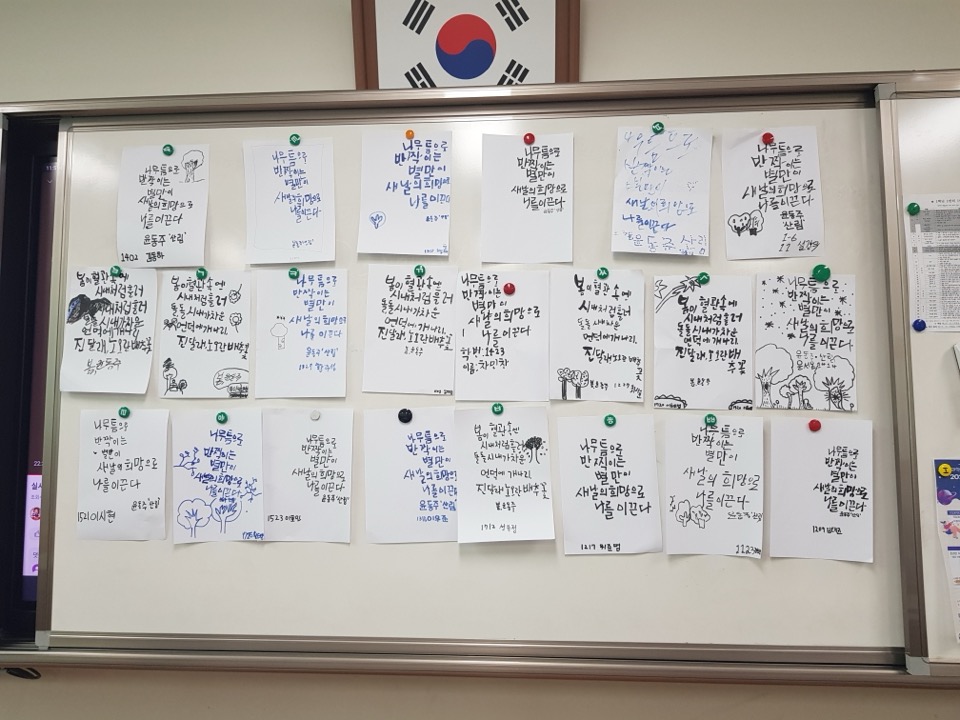 나무틈으로
반짝이는
별만이
새날의 희망으로
나를 이끈다
윤동주 '산림'
나무틈으로
반짝이는
별만이
새날의 희망으로
나를 이끈다
나무틈으로
반짝이는
별만이
새날의 희망으로
나를 이끈다
나무틈으로
반짝이는
별만이
새날의 희망으로
나를 이끈다
새날의 희망으로
나를 이끈다
윤동주 산림
나무틈으로
반짝이는
별만이
새날의 희망으로
나를 이끈다
윤동주
'산림'
1-6
봄이 혈관 속에
시내처럼 흘러
돌돌 시내가차운
언덕에 개나리
진달래, 노오란 배추꽃
봄, 윤동주
봄이 혈관 속엔
시내처럼 흘러
돌돌 시내가차운
언덕에 개나리
진달래 노오란 배추꽃
나무틈으로
반짝이는
별만이
새날의 희망으로
나를 이끈다
윤동주 '산림'
봄이 혈관 속엔
시내처럼 흘러
돌돌 시내가차운
언덕에 개나리
진달래, 노오란 배추꽃
나무틈으로
반짝이는
별만이
새날의 희망으로
나를
이끈다
학번: 1623
이름: 차민찬
봄이 혈관 속에
시내처럼 흘러
돌돌 시내가차운
언덕에 개나리
진달래 노오란 배추
꽃
봄이 혈관 속에
시내처럼 흘러
돌돌 시내가차운
언덕에 개나리
진달래, 노오란 배
추꽃
봄 윤동주
나무틈으로
반짝이는
별만이
새날의 희망으로
나를 이끈다
윤동주-산림
나무틈으로
반짝이는
별만이
새날의 희망으로
나를 이끈다
윤동주 '산림'
1521 이시현
나무틈으로
반짝이는
별만이
새날의 희망으로
나를 이끈다
나무틈으로
반짝이는
별만이
새날의 희망으로
나를 이끈다
윤동주 '산림'
1523
나무틈으로
반짝이는
별만이
새날의 희망으로
나를 이끈다
윤동주 '산림'
봄이 혈관 속엔
시내처럼 흘러
돌돌 시내가차운
언덕에 개나리
진달래 노오란 배추꽃
봄 윤동주
나무틈으로
반짝이는
별만이
새날의 희망으로
나를 이끈다
1217
나무틈으로
반짝이는
별만이
새날의 희망으로
나를 이끈다
1223
나무틈으로
반짝이는
별만이
새날의 희망으로
나를 이끈다
윤동주 '산림'